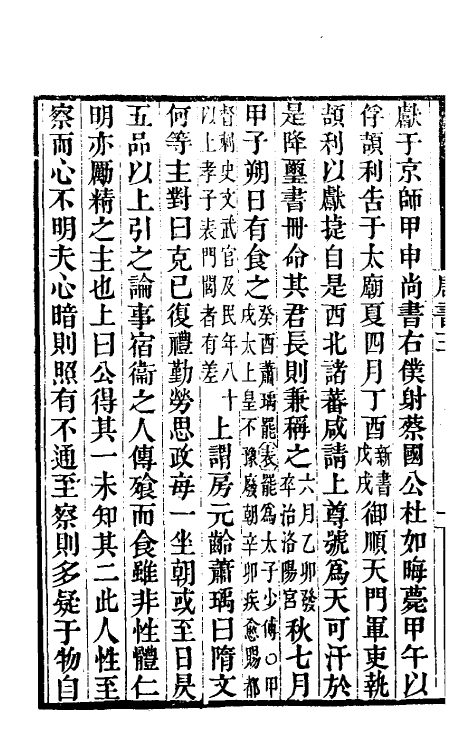 獻于京師甲申尚書右僕射蔡國公杜如晦薨甲午以
俘頡利告于太廟夏四月丁酉新書戊戌御順天門軍吏執
頡利以獻捷自是西北諸蕃咸請上尊號爲天可汗於
是降璽書冊命其君長則兼稱之六月乙卯發卒治洛陽宮秋七月
甲子朔日有食之癸酉蕭瑀罷表罷爲太子少傅○甲戌太上皇不豫廢朝辛卯疾愈賜都
督刺史文武官及民年八十以上孝子表門閭者有差上謂房元齡蕭瑀曰隋文
何等主對曰克已復禮勤勞思政每一坐朝或至日昃
五品以上引之論事宿衞之人傳飱而食雖非性體仁
明亦勵精之主也上曰公得其一未知其二此人性至
察而心不明夫心暗則照有不通至察則多疑于物自